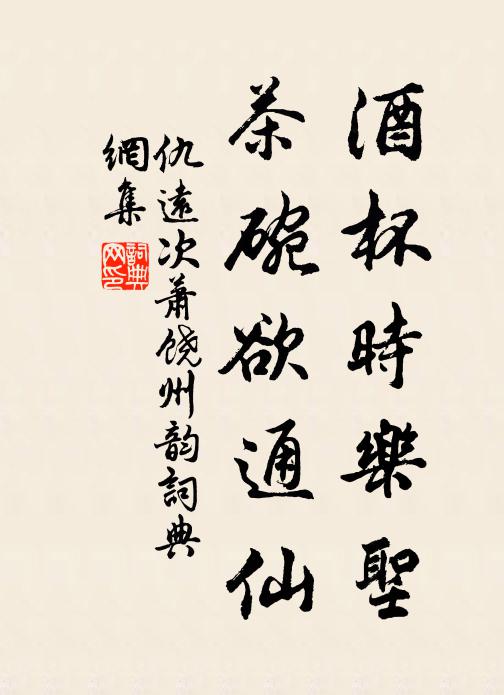 酒杯時樂聖
茶碗欲通仙
仇遠次蕭饒州韵詞典
網集
詞典網印